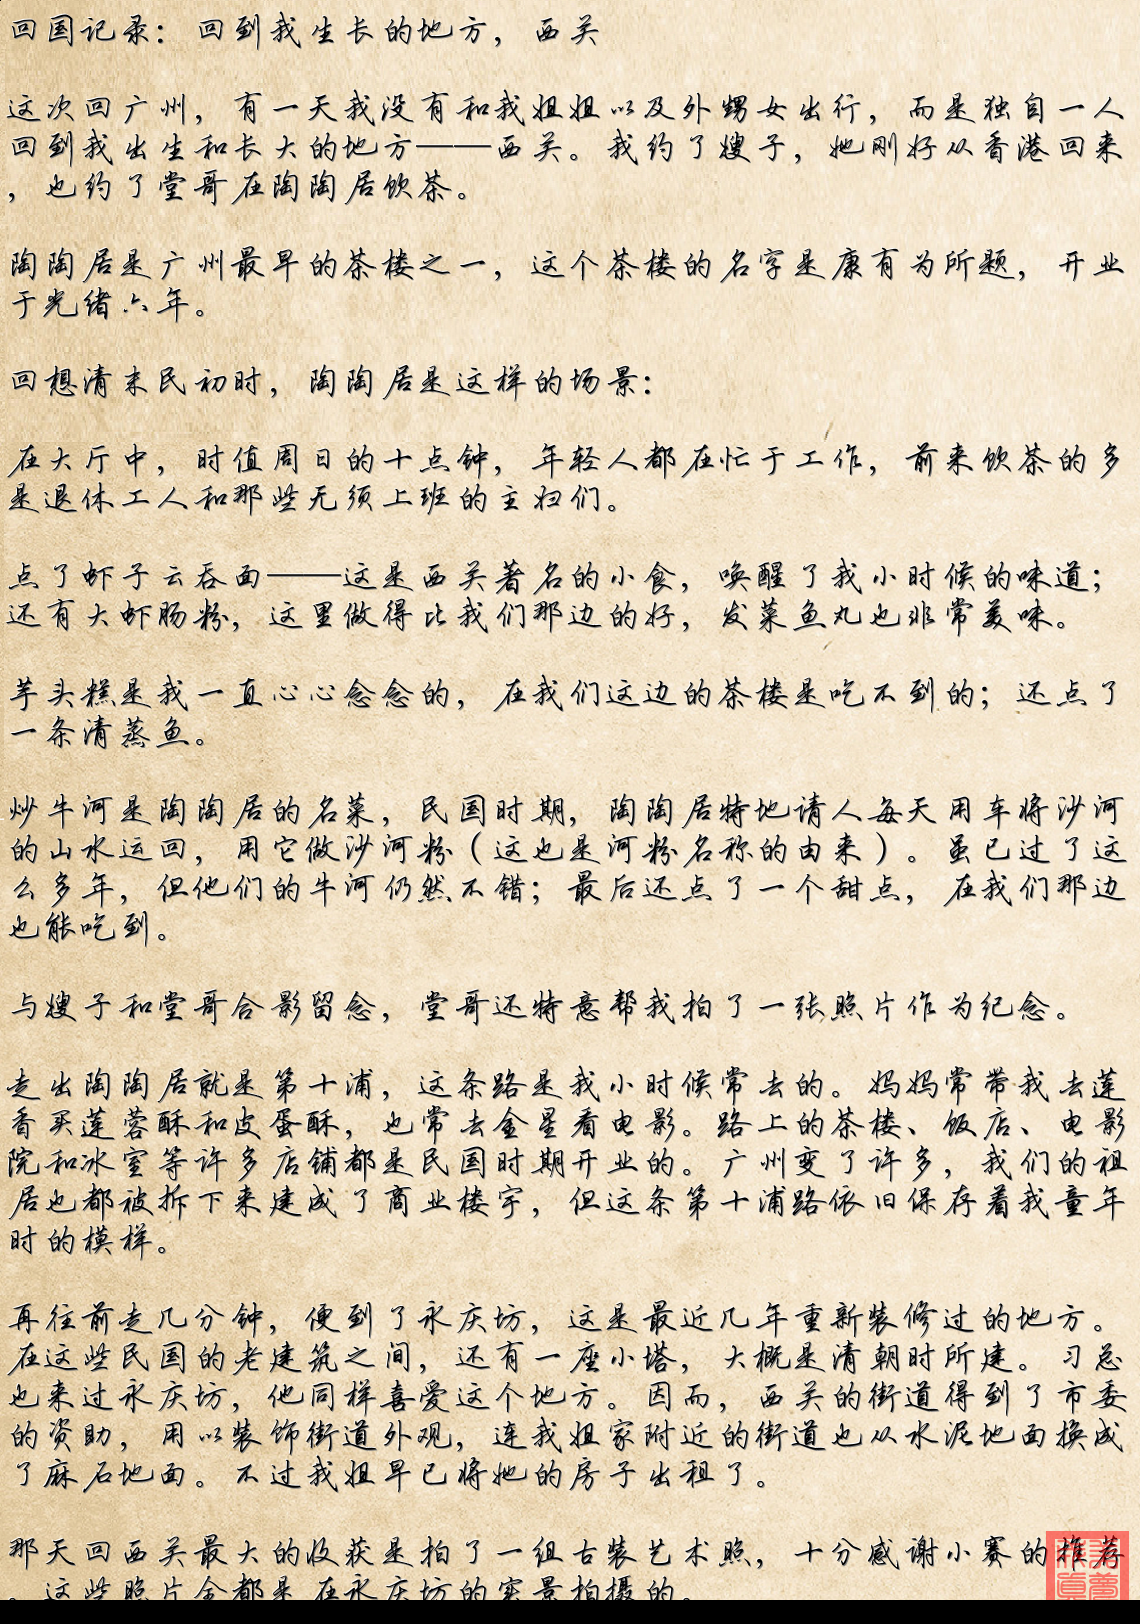 回国记录：回到我生长的地方，西关
这次回广州，有一天我没有和我姐姐以及外甥女出行，而是独自一人
回到我出生和长大的地方——西关。我约了嫂子，她刚好从香港回来
，也约了堂哥在陶陶居饮茶。
陶陶居是广州最早的茶楼之一，这个茶楼的名字是康有为所题，开业
于光绪六年。
回想清末民初时，陶陶居是这样的场景：
在大厅中，时值周日的十点钟，年轻人都在忙于工作，前来饮茶的多
是退休工人和那些无须上班的主妇们。
点了虾子云吞面——这是西关著名的小食，唤醒了我小时候的味道；
还有大虾肠粉，这里做得比我们那边的好，发菜鱼丸也非常美味。
芋头糕是我一直心心念念的，在我们这边的茶楼是吃不到的；还点了
一条清蒸鱼。
炒牛河是陶陶居的名菜，民国时期，陶陶居特地请人每天用车将沙河
的山水运回，用它做沙河粉（这也是河粉名称的由来）。虽已过了这
么多年，但他们的牛河仍然不错；最后还点了一个甜点，在我们那边
也能吃到。
与嫂子和堂哥合影留念，堂哥还特意帮我拍了一张照片作为纪念。
走出陶陶居就是第十浦，这条路是我小时候常去的。妈妈常带我去莲
香买莲蓉酥和皮蛋酥，也常去金星看电影。路上的茶楼、饭店、电影
院和冰室等许多店铺都是民国时期开业的。广州变了许多，我们的祖
居也都被拆下来建成了商业楼宇，但这条第十浦路依旧保存着我童年
时的模样。
再往前走几分钟，便到了永庆坊，这是最近几年重新装修过的地方。
在这些民国的老建筑之间，还有一座小塔，大概是清朝时所建。习总
也来过永庆坊，他同样喜爱这个地方。因而，西关的街道得到了市委
的资助，用以装饰街道外观，连我姐家附近的街道也从水泥地面换成
了麻石地面。不过我姐早已将她的房子出租了。
那天回西关最大的收获是拍了一组古装艺术照，十分感谢小赛的推荐
。这些照片全都是在永庆坊的实景拍摄的。